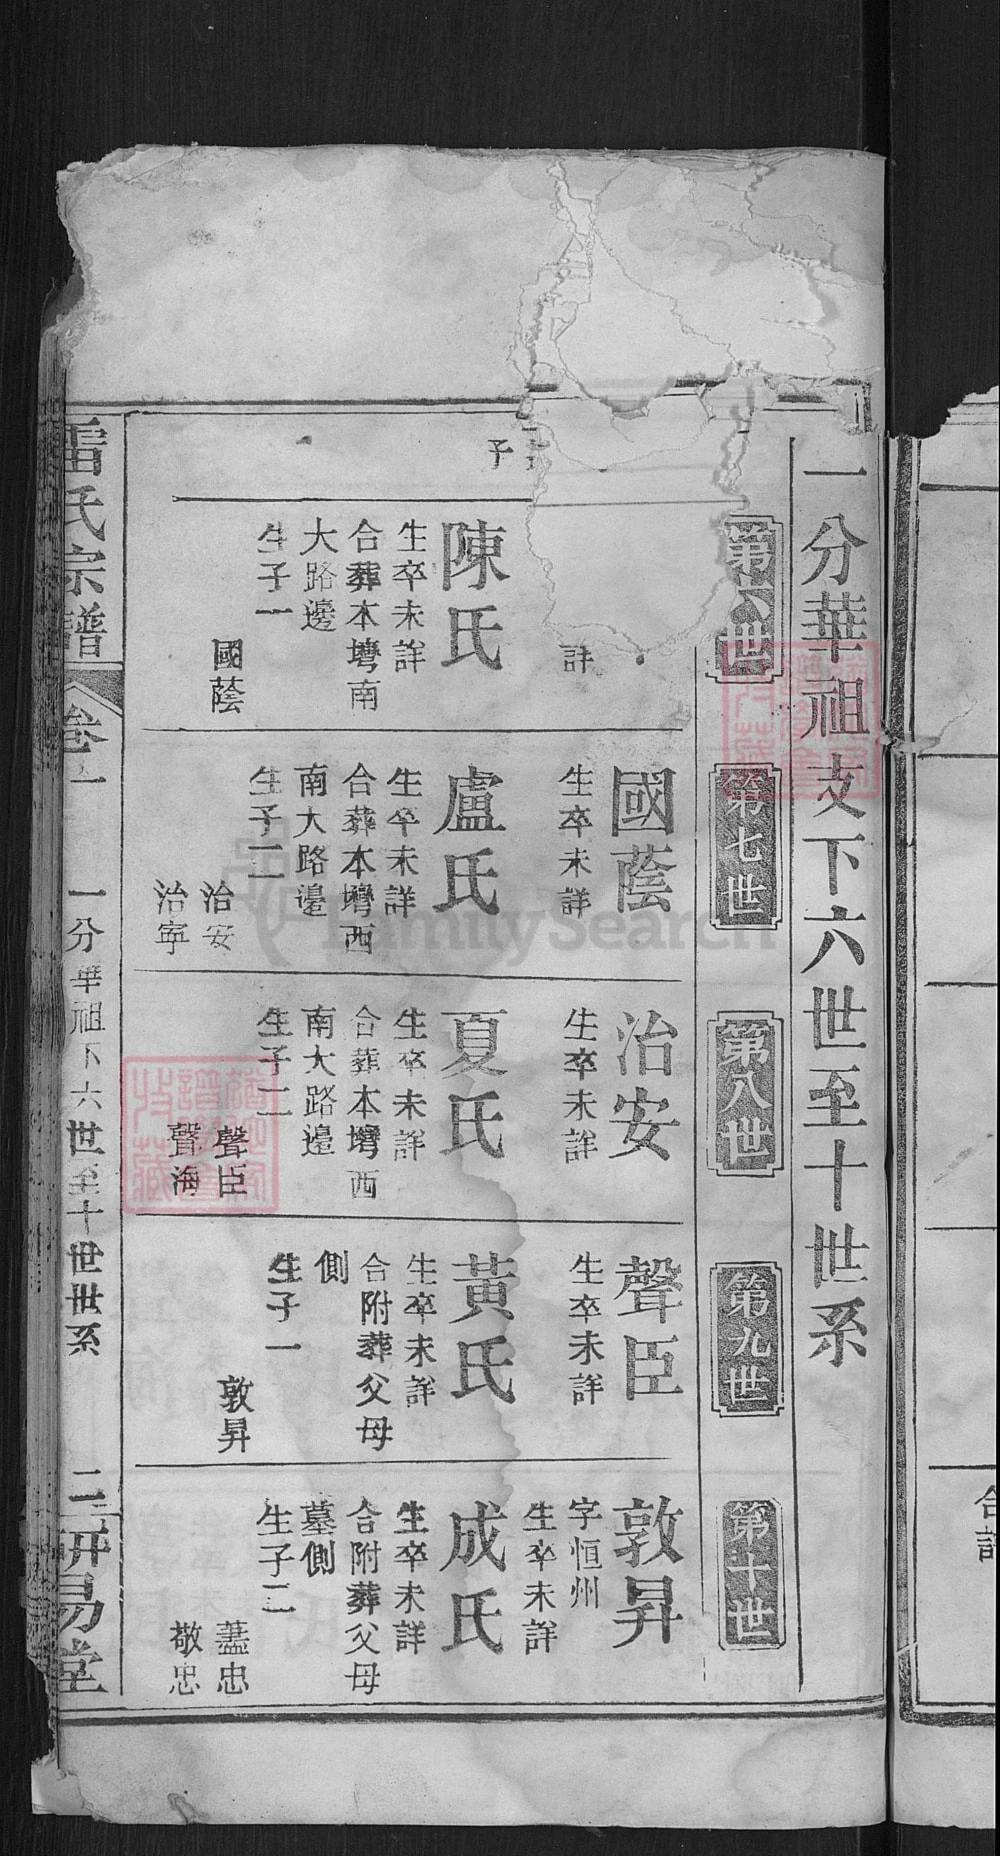 一分華祖支下六世至十世系
第六世
子
詳
陳氏
生卒未詳
合葬本塆南
大路邊
生子一
國蔭
第七世
國蔭
生卒未詳
盧氏
生卒未詳
合葬本塆西
南大路邊
生子二
治安
治寧
第八世
治安
生卒未詳
夏氏
生卒未詳
合葬本塆西
南大路邊
生子二
聲臣
聲海
第九世
聲臣
生卒未詳
黃氏
生卒未詳
合附葬父母
側
生子一
敦昇
第十世
敦昇
字恒州
生卒未詳
成氏
生卒未詳
合附葬父母
墓側
生子二
藎忠
敬忠
雷氏宗譜
卷一
一分華祖下六世至十世世系
二
研易堂
FamilySearch